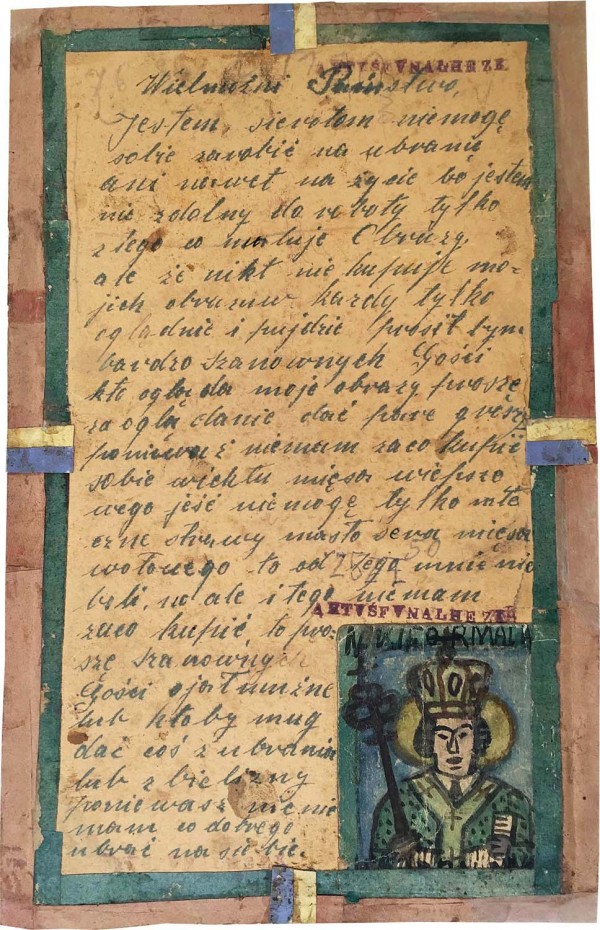 ARTYSFVNALHEZE
Wielmożni Państwo,
Jestem, sierotom niemogę
sobie zarobić na ubranie
ani nawet na życie bo jestem
nie zdolny do roboty tylko
z tego co maluje Obrazy.
ale że nikt nie kupuje mo-
jich obrazuw każdy tylko
oglądnie i pujdzie prosił bym
bardzo szanownych Gości
kto ogląda moje obrazy prosze
za oglądanie dać pare groszy
poniewaź niemam zaco kupić
sobie wichtu mięsa wieprzo
wego jeść niemogę tylko mle
czne strawy masło sera mięsa
wołowego to od tego mnie nie
boli, no ale i tego niemam
ARTYSFVNALHEZE
zaco kupić to pro-
szę szanownych
Gości ojałmużne
lub ktoby mug
dać coś z ubrania
lub z bielizny
poniewasz nie
mam co dobrego
ubrać na siebie.